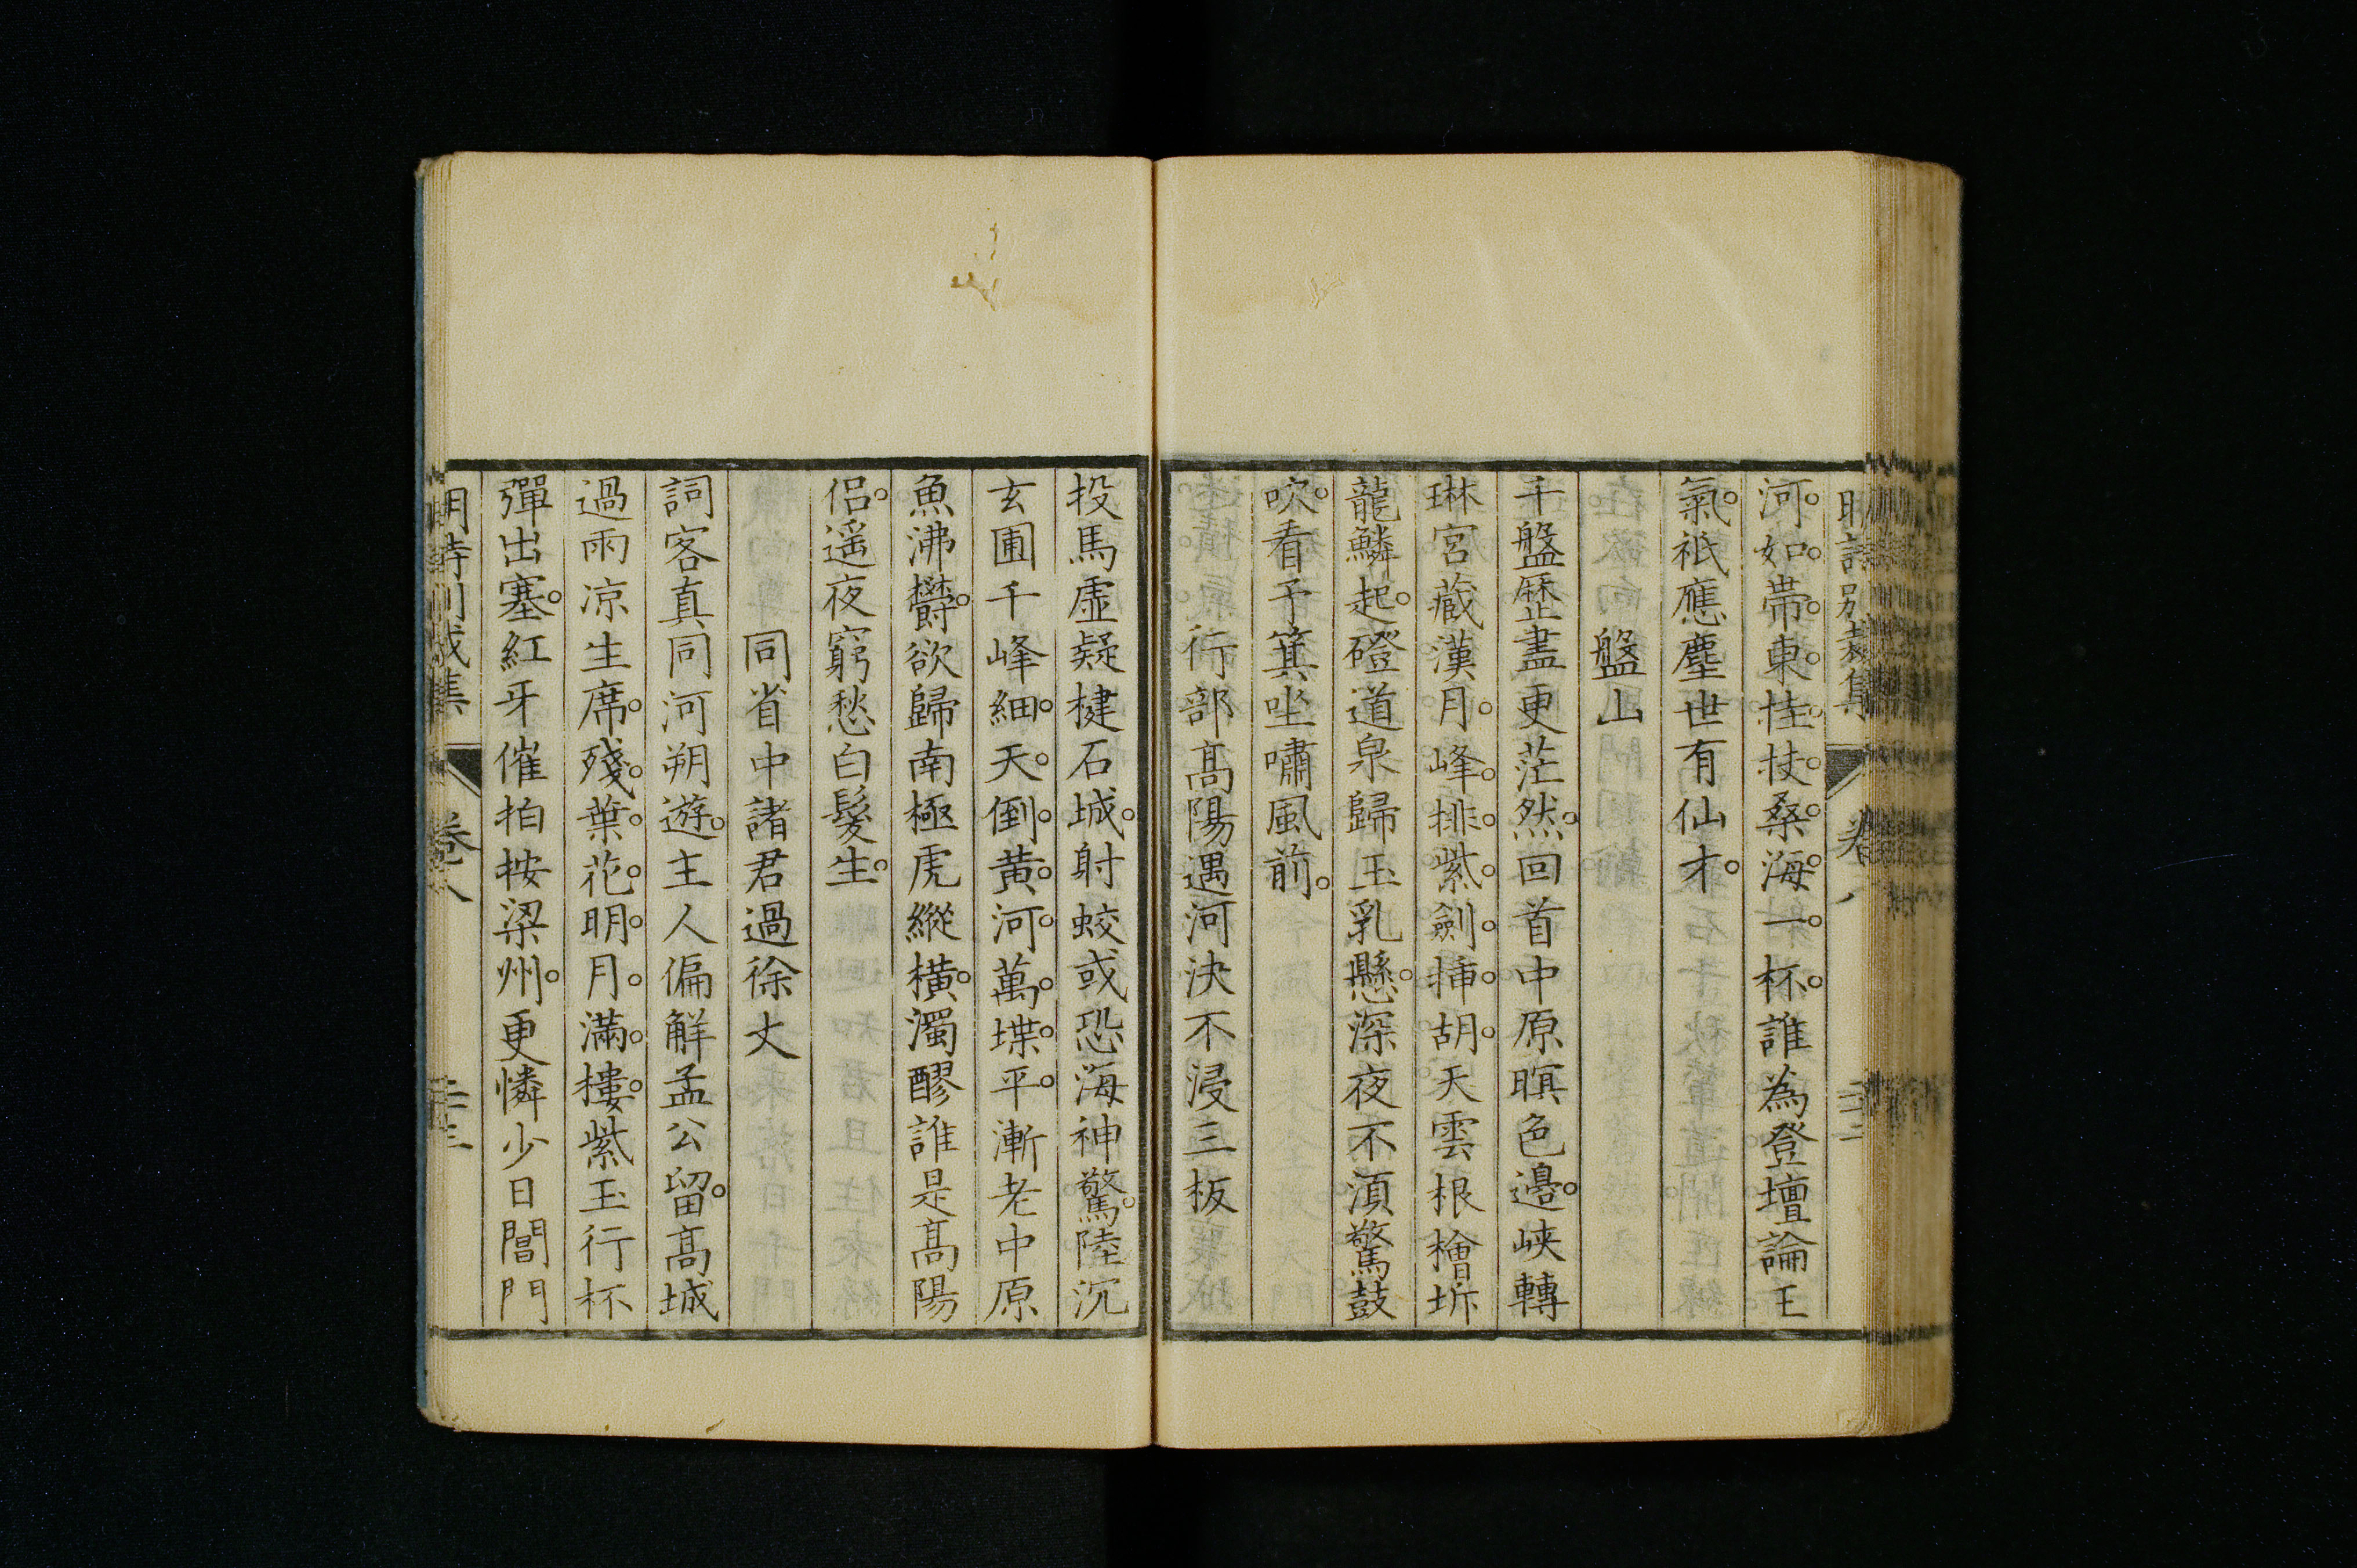 明詩別裁集 卷八
河如帶東挂扶桑海一杯誰為登壇論王
氣祇應塵世有仙才
盤山
千盤歷盡更茫然回首中原暝色邉峽轉
琳宮藏漢月峰排紫劍揷胡天雲根檜坼
龍鱗起磴道泉歸玉乳懸深夜不湏驚鼓
吹看予箕坐嘯風前
行部高陽遇河決不浸三板
投馬虛疑楗石城射蛟或恐海神驚陸沉
玄圃千峰細天倒黃河萬堞平漸老中原
魚沸欝欲歸南極虎縱橫濁醪誰是高陽
侶遥夜窮愁白髮生
同省中諸君過徐丈
詞客真同河朔遊主人偏解孟公留高城
過雨凉生席殘葉花明月滿樓紫玉行杯
彈出塞紅牙催拍按梁州更憐少日閶門
明詩別裁集 卷八 二十三